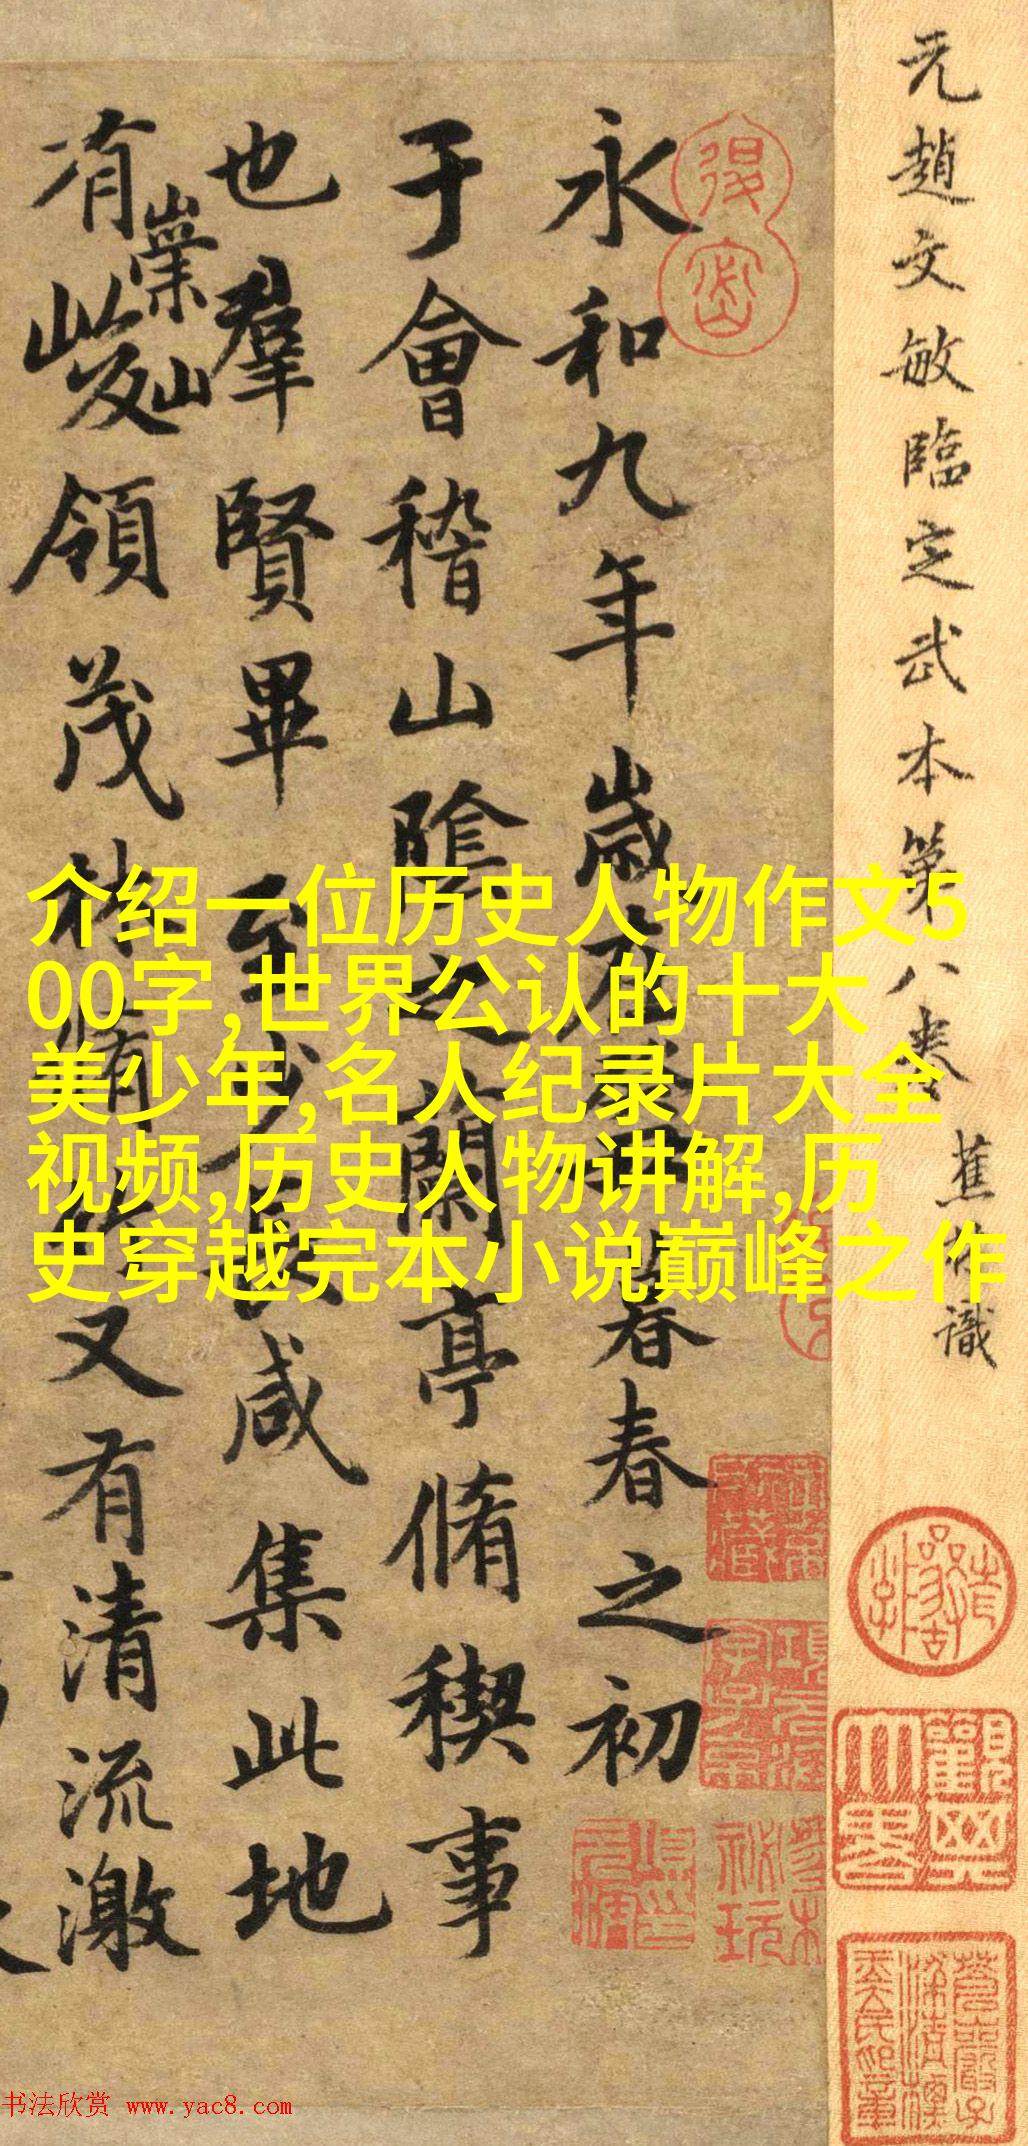 元趙文敏臨定武本第八卷 蕉林識
永和九年歲在癸丑暮春春之初
于會稽山陰之蘭亭脩稧事
也羣賢畢至少長咸集此地
有崇山峻領茂林脩竹又有清流激
介绍一位历史人物作文5
00字,世界公认的十大
美少年,名人纪录片大全
视频,历史人物讲解,历
史穿越完本小说巅峰之作
书法欣赏 www.yac8.com